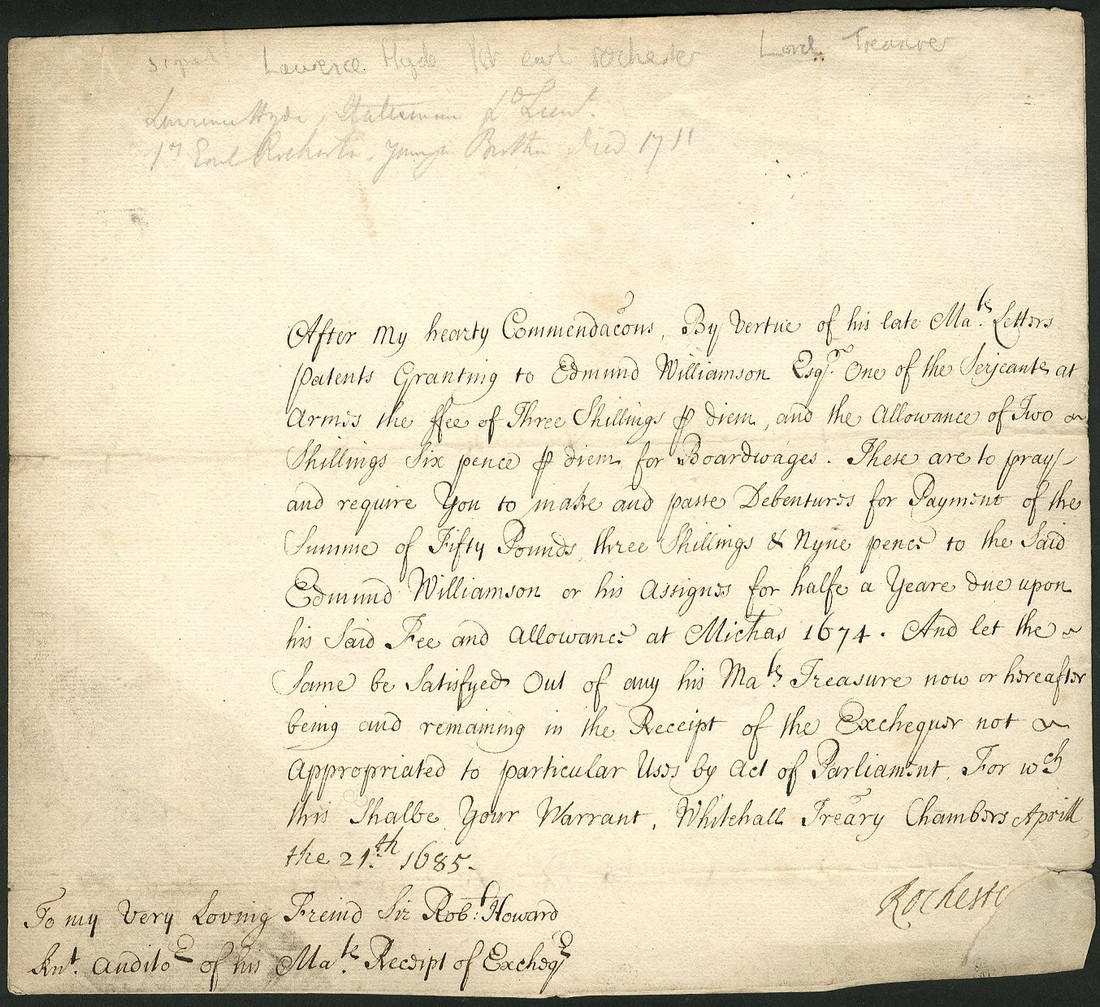 signed Lawrence Hyde 1st earl rochester Lord Treasurer
Lawrence Hyde, Statesman Ld Lieut.
1st Earl Rochester. younger Brother died 1711
After my hearty Commendacons, By Vertue of his late Ma.ts Letters
patents Granting to Edmund Williamson Esqr. One of the Serjeants at
Armes the ffee of Three Shillings ꝑ diem, and the Allowance of Two ~
Shillings Six pence ꝑ diem for Boardwages. These are to pray
and require You to make and passe Debentures for Payment of the
Summe of Fifty Pounds three Shillings & Nyne pence to the Said
Edmund Williamson or his Assignes for halfe a Yeare due upon
his Said Fee and Allowance at Michas 1674. And let the ~
Same be Satisfyed Out of any his Ma.ts Treasure now or hereafter
being and remaining in the Receipt of the Exchequer not ~
Appropriated to particular Uses by Act of Parliament, For wch
this Shalbe Your Warrant, Whitehall Treãry Chambers Aprill
the 21.th 1685.
Rocheste
To my Very Loving Freind Sir Rob.t Howard
Knt. Auditor of his Ma.ts Receipt of Excheqr